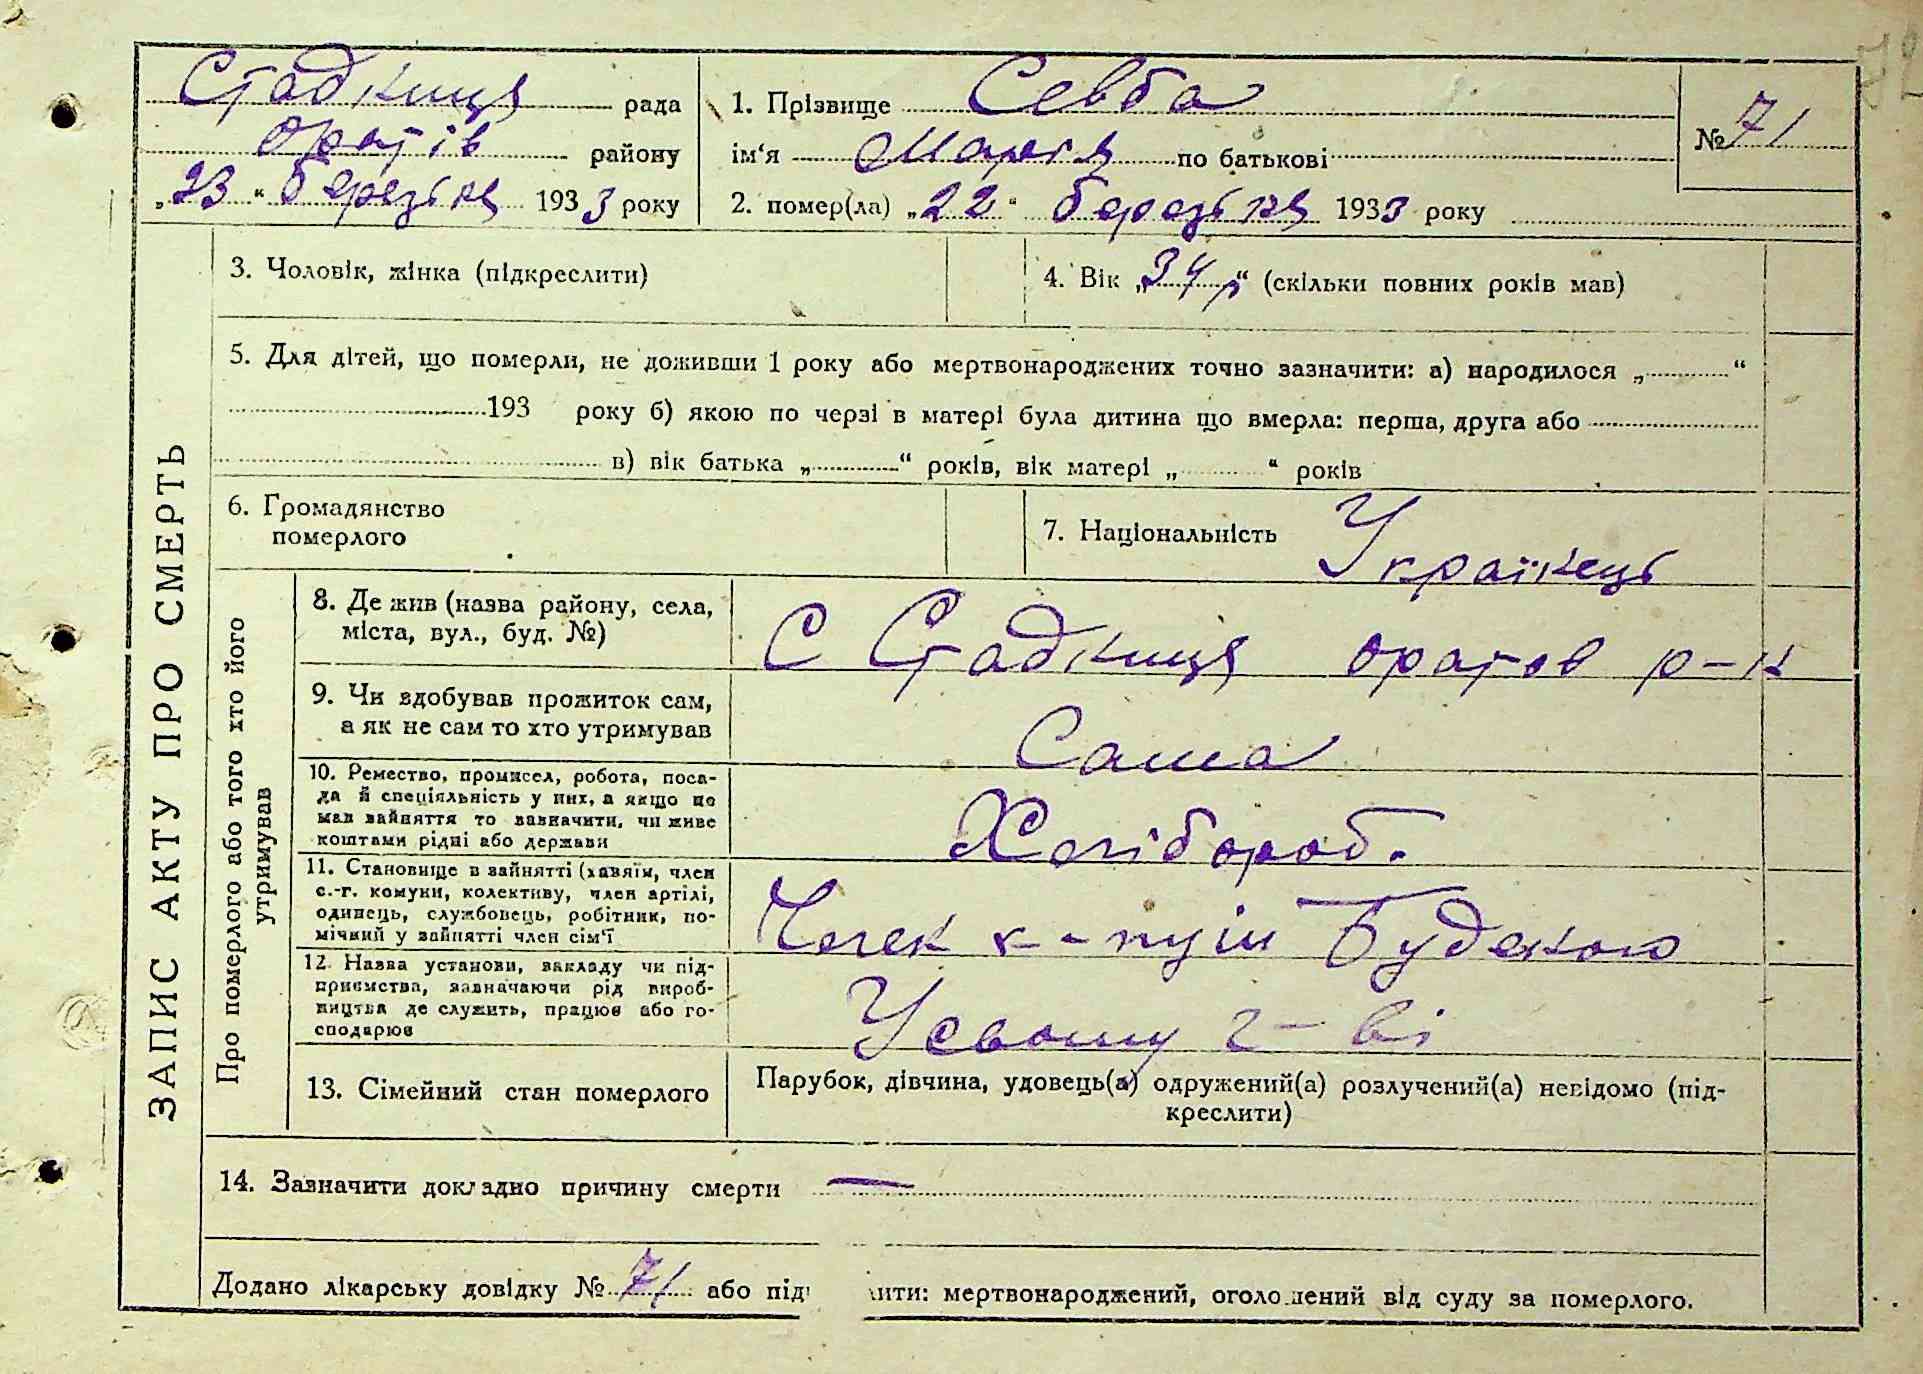 72
Стадниця рада
Оратів району
„23“ березня 1933 року
1. Прізвище Севба
ім‘я Марія по батькові
2. помер(ла) „22“ березня 1933 року
№ 71
3. Чоловік, жінка (підкреслити)
4. Вік „34 р“ (скільки повних років мав)
5. Для дітей, що померли, не доживши 1 року або мертвонароджених точно зазначити: а) народилося „ “
193 року б) якою по черзі в матері була дитина що вмерла: перша, друга або
в) вік батька „ “ років, вік матері „ “ років
6. Громадянство
померлого
7. Національність Українець
ЗАПИС АКТУ ПРО СМЕРТЬ
Про померлого або того хто його
утримував
8. Де жив (назва району, села,
міста, вул., буд. №)
С Стадниця Оратов р-н
9. Чи здобував прожиток сам,
а як не сам то хто утримував
Сама
10. Ремество, промисел, робота, поса-
да й спеціяльність у них, а якщо не
мав зайняття то зазначити, чи живе
коштами рідні або держави
Хлібороб.
11. Становище в зайнятті (хазяїн, член
с.-г. комуни, колективу, член артілі,
одинець, службовець, робітник, по-
мічний у зайнятті член сім‘ї
Член к-
12. Назва установи, закладу чи під-
приємства, зазначаючи рід вироб-
ництва де служить, працює або го-
сподарює
Усвому г-ві
13. Сімейний стан померлого
Парубок, дівчина, удовець(а) одружений(а) розлучений(а) невідомо (під-
креслити)
14. Зазначити докладно причину смерти —
Додано лікарську довідку № 71 або під ити: мертвонароджений, оголошений від суду за померлого.